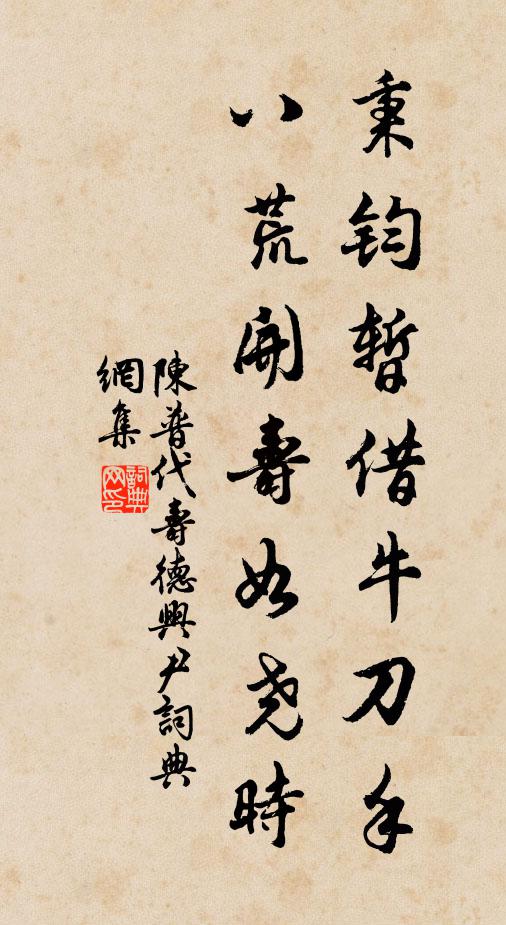 秉鈞暫借牛刀手
八荒開壽如堯時
陳普代壽德興尹詞典
網集
詞典網印